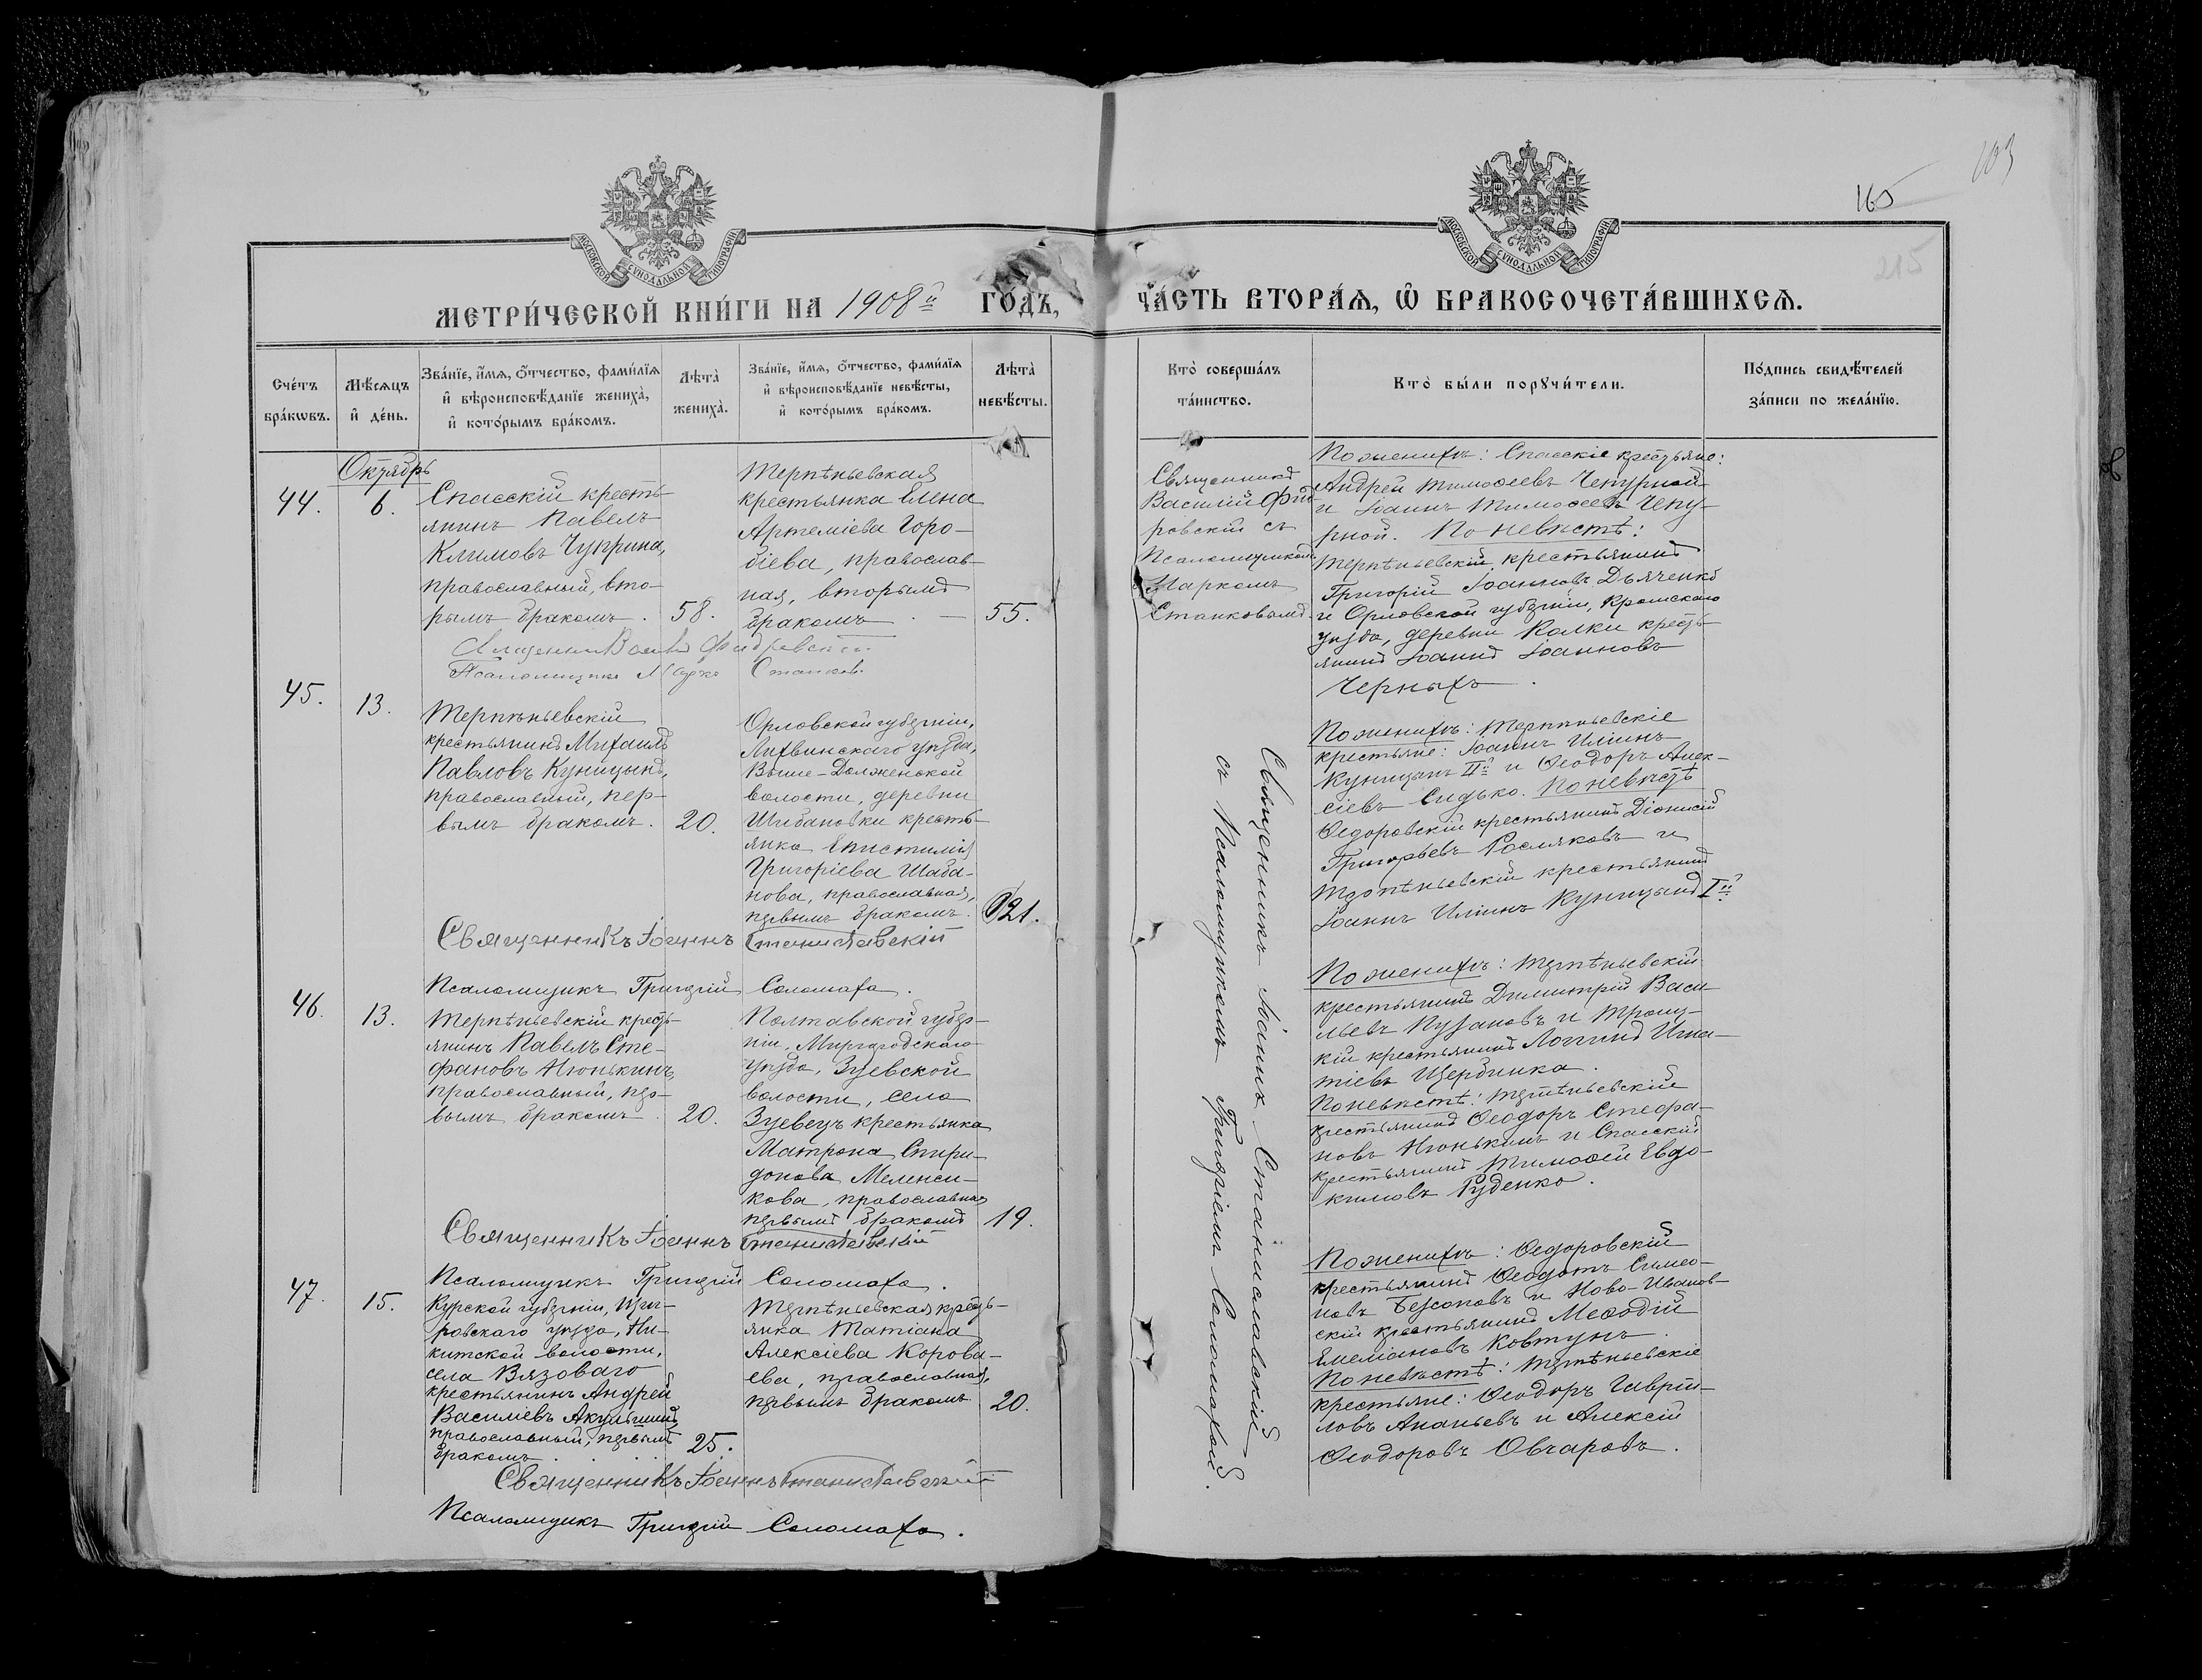 103
165
215
МОСКОВСКОЙ СѴНОДАЛЬНОЙ ТИПОГРАФІИ
МОСКОВСКОЙ СѴНОДАЛЬНОЙ ТИПОГРАФІИ
МЕТРИ́ЧЕСКОЙ КНИ́ГИ НА 1908й ГО́ДЪ,
ЧА́СТЬ ВТОРА́Я, Ѡ҆ БРАКОСОЧЕТА́ВШИХСЯ.
Сче́тъ бра́кωвъ.
Мѣ́сяцъ и҆ де́нь.
Зва́нїе, и҆́мя, ѻ҆́тчество, фами́лїя
и҆ вѣроисповѣ́данїе жениха̀,
и҆ кото́рымъ бра́комъ.
Лѣта̀ жениха̀.
Зва́нїе, и҆́мя, ѻ҆́тчество, фами́лїя
и҆ вѣроисповѣ́данїе невѣ́сты,
и҆ кото́рымъ бра́комъ.
Лѣта̀ невѣ́сты.
Кто̀ соверша́лъ та́инство.
Кто̀ бы́ли порꙋчи́тели.
По́дпись свидѣ́телей
за́писи по жела́нїю.
Октябрь
44.
6.
Спасскій кресть-
янинъ Павелъ
Климовъ Чуприна,
православный, вто-
рымъ бракомъ.
58.
Терпѣньевская
крестьянка Елена
Артеміева Горо-
біева, православ-
ная, вторымъ
бракомъ
55.
Священникъ
Василій Фид-
ровскій съ
Псаломщикомъ
Маркомъ
Станковымъ.
По женихѣ: Спасскіе крестьяне:
Андрей Тимоѳеевъ Чепурной
и Іоаннъ Тимоѳеевъ Чепу-
рной. По невѣстѣ:
Терпѣньевскій крестьянинъ
Григорій Іоанновъ Дьяченко
и Орловской губерніи, Кромскаго
уѣзда, деревни Калки кресть-
янинъ Іоаннъ Іоанновъ
Черныхъ.
Псаломщикъ Марко Станков.
45.
13.
Терпѣньевскій
крестьянинъ Михаилъ
Павловъ Куницынъ,
православный, пер-
вымъ бракомъ.
20.
Орловской губерніи,
Лихвинскаго уѣзда,
Выше-Долженской
волости, деревни
Шибановки кресть-
янка Епистимія
Григоріева Шаба-
нова, православная,
первымъ бракомъ.
21.
По женихѣ: Терпѣньевскіе
крестьяне: Іоаннъ Иліинъ
Куницынъ IIй и Ѳеодоръ Алек-
сіевъ Сидько. По невѣстѣ
Ѳедоровскій крестьянинъ Діонисій
Григорьевъ Росляковъ и
Терпѣньевскій крестьянинъ
Іоаннъ Иліинъ Куницынъ Iй
Священникъ Іоаннъ Станиславскій
Псаломщикъ Григорій Соломаха.
Священникъ Іоаннъ Станиславскій
съ Псаломщикомъ Григоріемъ Соломахой.
46.
13.
Терпѣньевскій кресть-
янинъ Павелъ Сте-
фановъ Нюнькинъ,
православный, пер-
вымъ бракомъ.
20.
Полтавской губер-
ніи, Миргородскаго
уѣзда, Зуевской
волости, села
Зуевецъ крестьянка
Матрона Спири-
донова Меленси-
кова, православная
первымъ бракомъ
19.
По женихѣ: Терпѣньевскій
крестьянинъ Димитрій Васи-
льевъ Пузановъ и Троиц-
кій крестьянинъ Логгинъ Игна-
тіевъ Щербинка.
По невѣстѣ: Терпѣньевскій
крестьянинъ Ѳеодоръ Стефа-
новъ Нюнькинъ и Спасскій
крестьянинъ Тимоѳей Евдо-
кимовъ Руденко.
Священникъ Іоаннъ Станиславскій
Псаломщикъ Григорій Соломаха.
47.
15.
Курской губерніи, Щиг-
ровскаго уѣзда, Ни-
китской волости,
села Вязоваго
крестьянинъ Андрей
Василіевъ Акульшинъ,
православный, первымъ
бракомъ
25.
Терпѣньевская кресть-
янка Татіана
Алексіева Корова-
ева, православная,
первымъ бракомъ
20.
По женихѣ: Ѳедоровскій
крестьянинъ Ѳеодотъ Симео-
новъ Безсоновъ и Ново-Иванов-
скій крестьянинъ Меѳодій
Емеліановъ Ковтунъ.
По невѣстѣ: Терпѣньевскіе
крестьяне: Ѳеодоръ Гаврій-
ловъ Ананьевъ и Алексій
Ѳеодоровъ Овчаровъ.
Священникъ Іоаннъ Станиславскій
Псаломщикъ Григорій Соломаха.